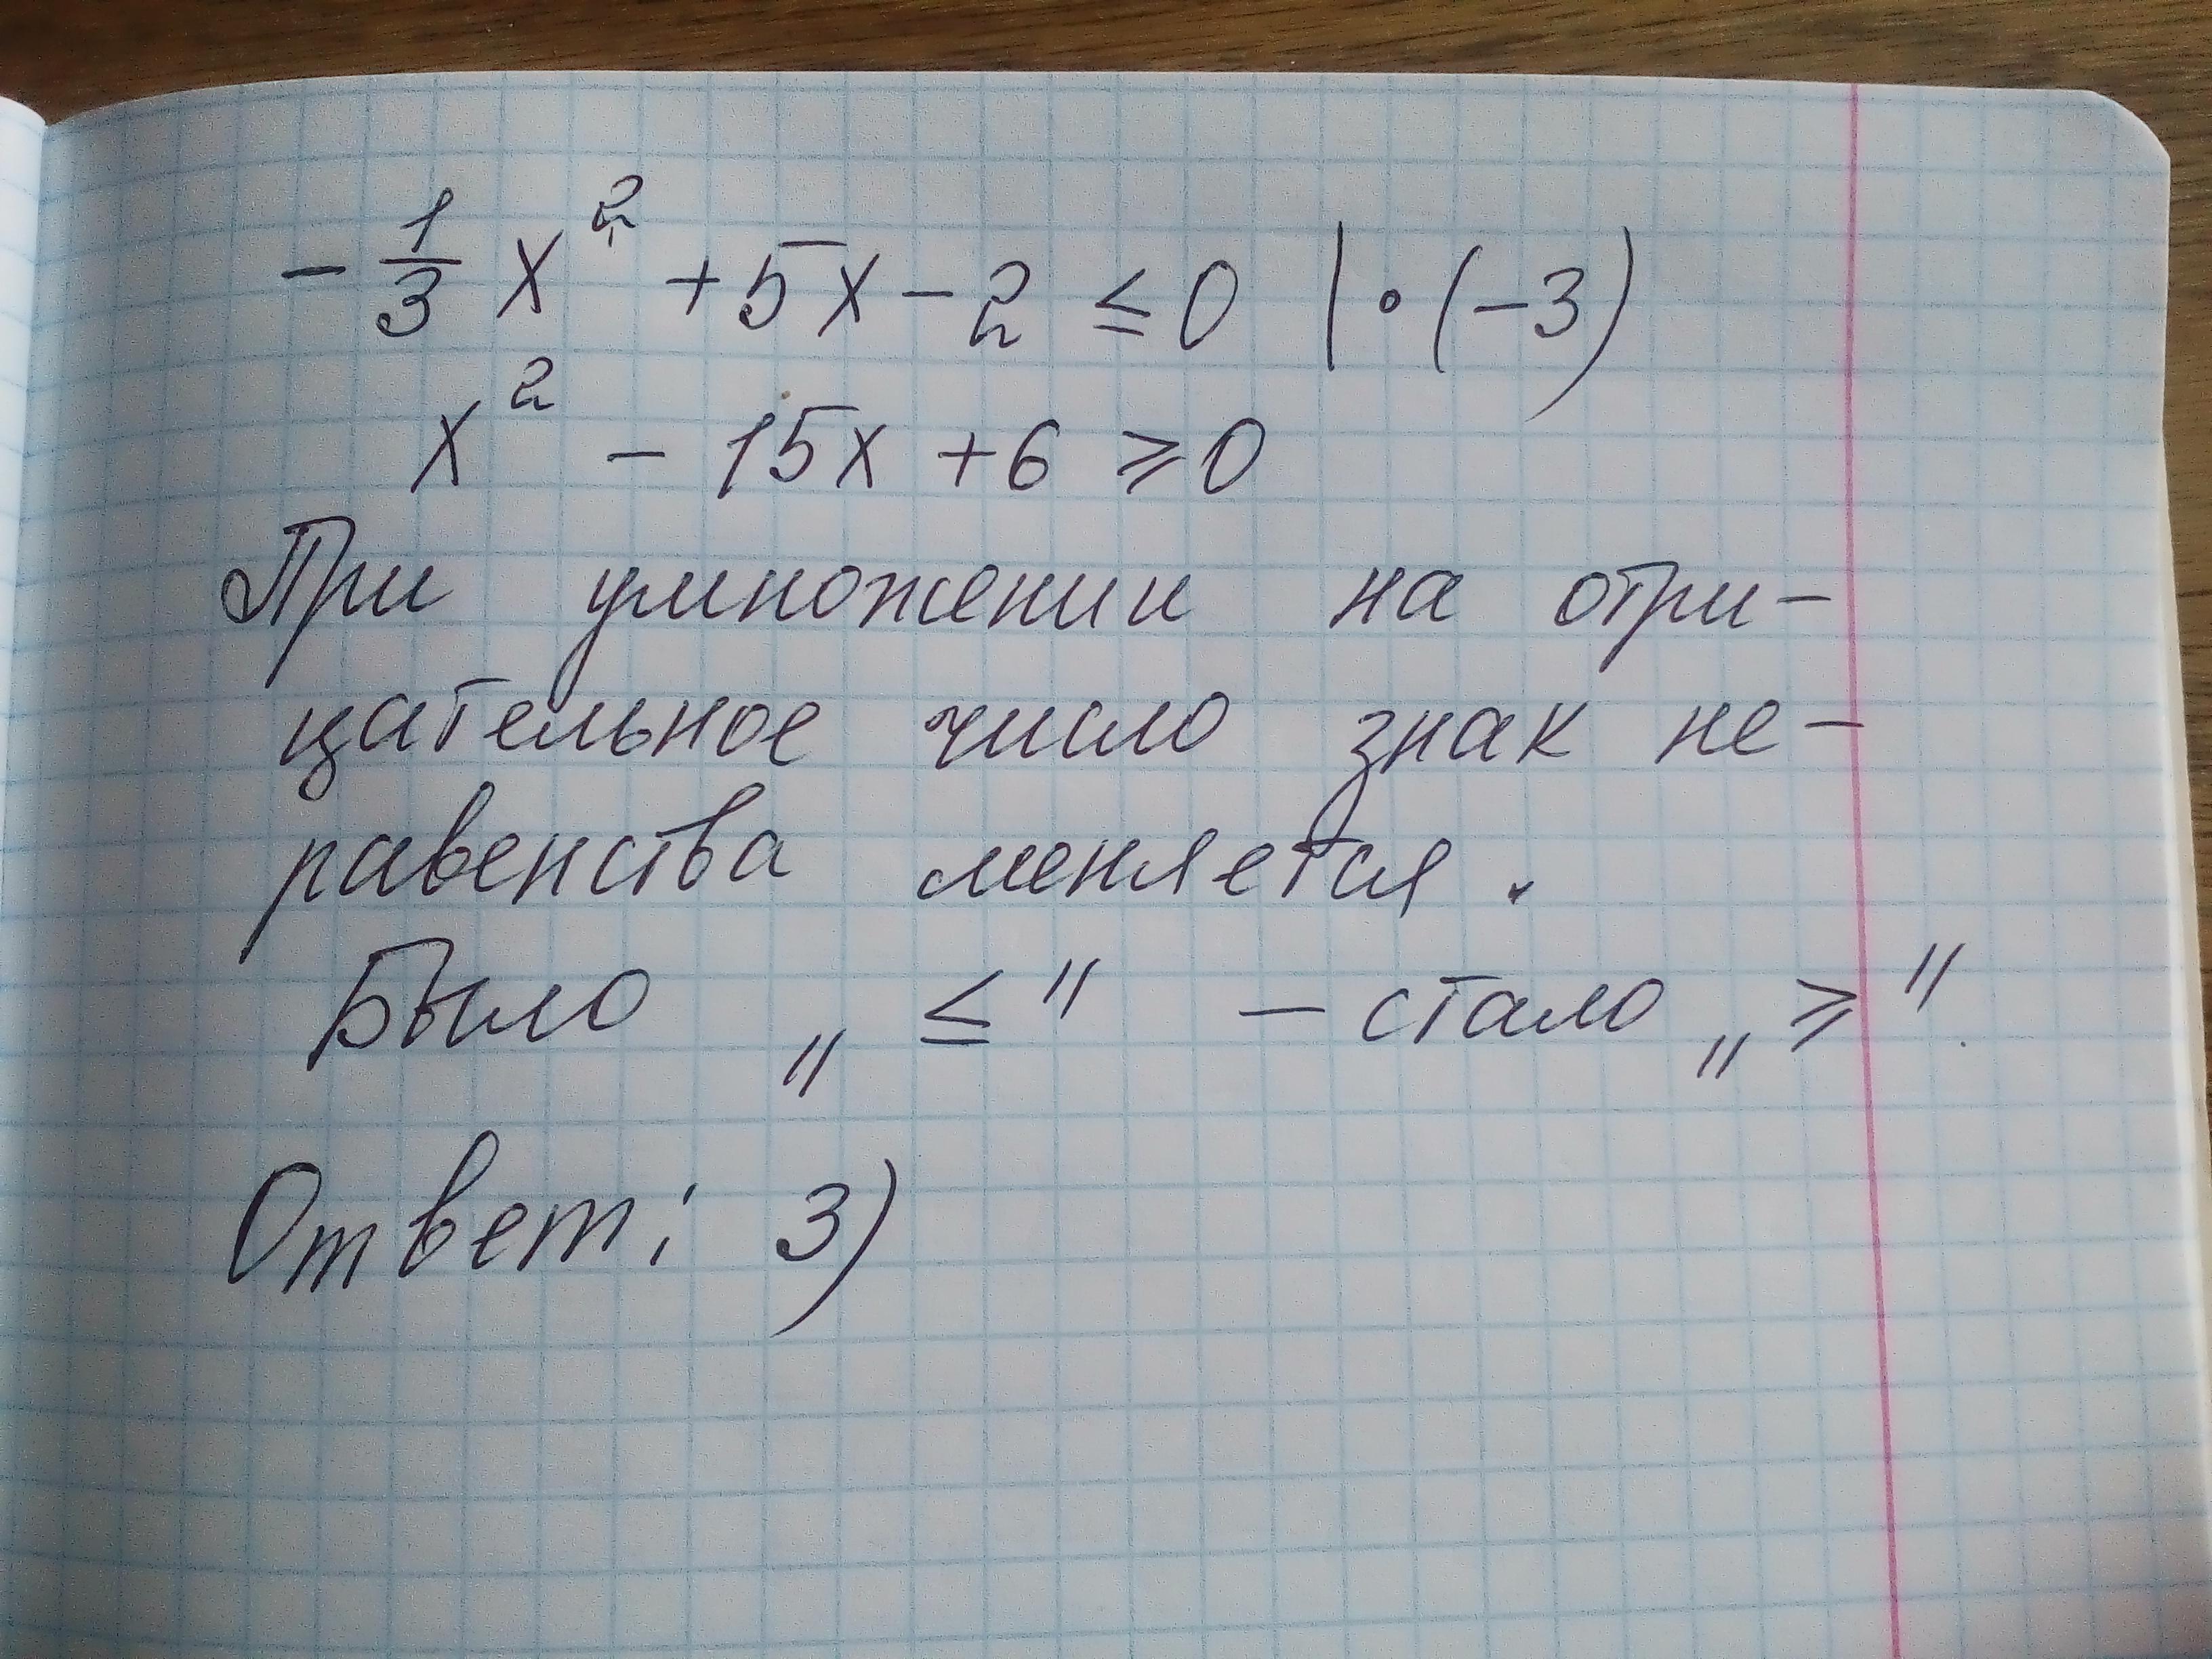 - 1/3 x² + 5x - 2 ≤ 0 | • (-3)
x² - 15x + 6 ⩾ 0
При умножении на отри-
цательное число знак не-
равенства меняется.
Было „ ≤ " - стало „ ⩾ ".
Ответ: 3)